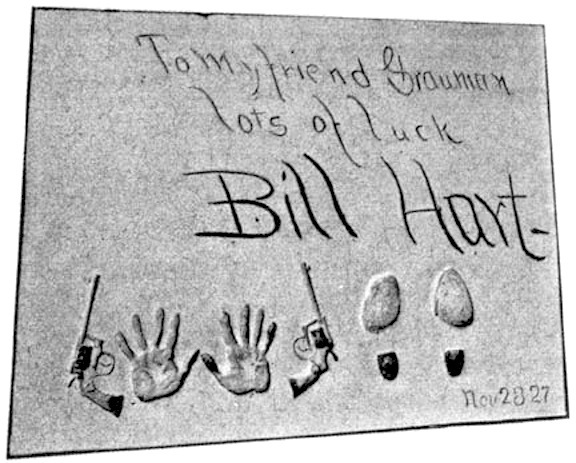 To my friend Grauman
lots of luck
Bill Hart-
Nov 28 27